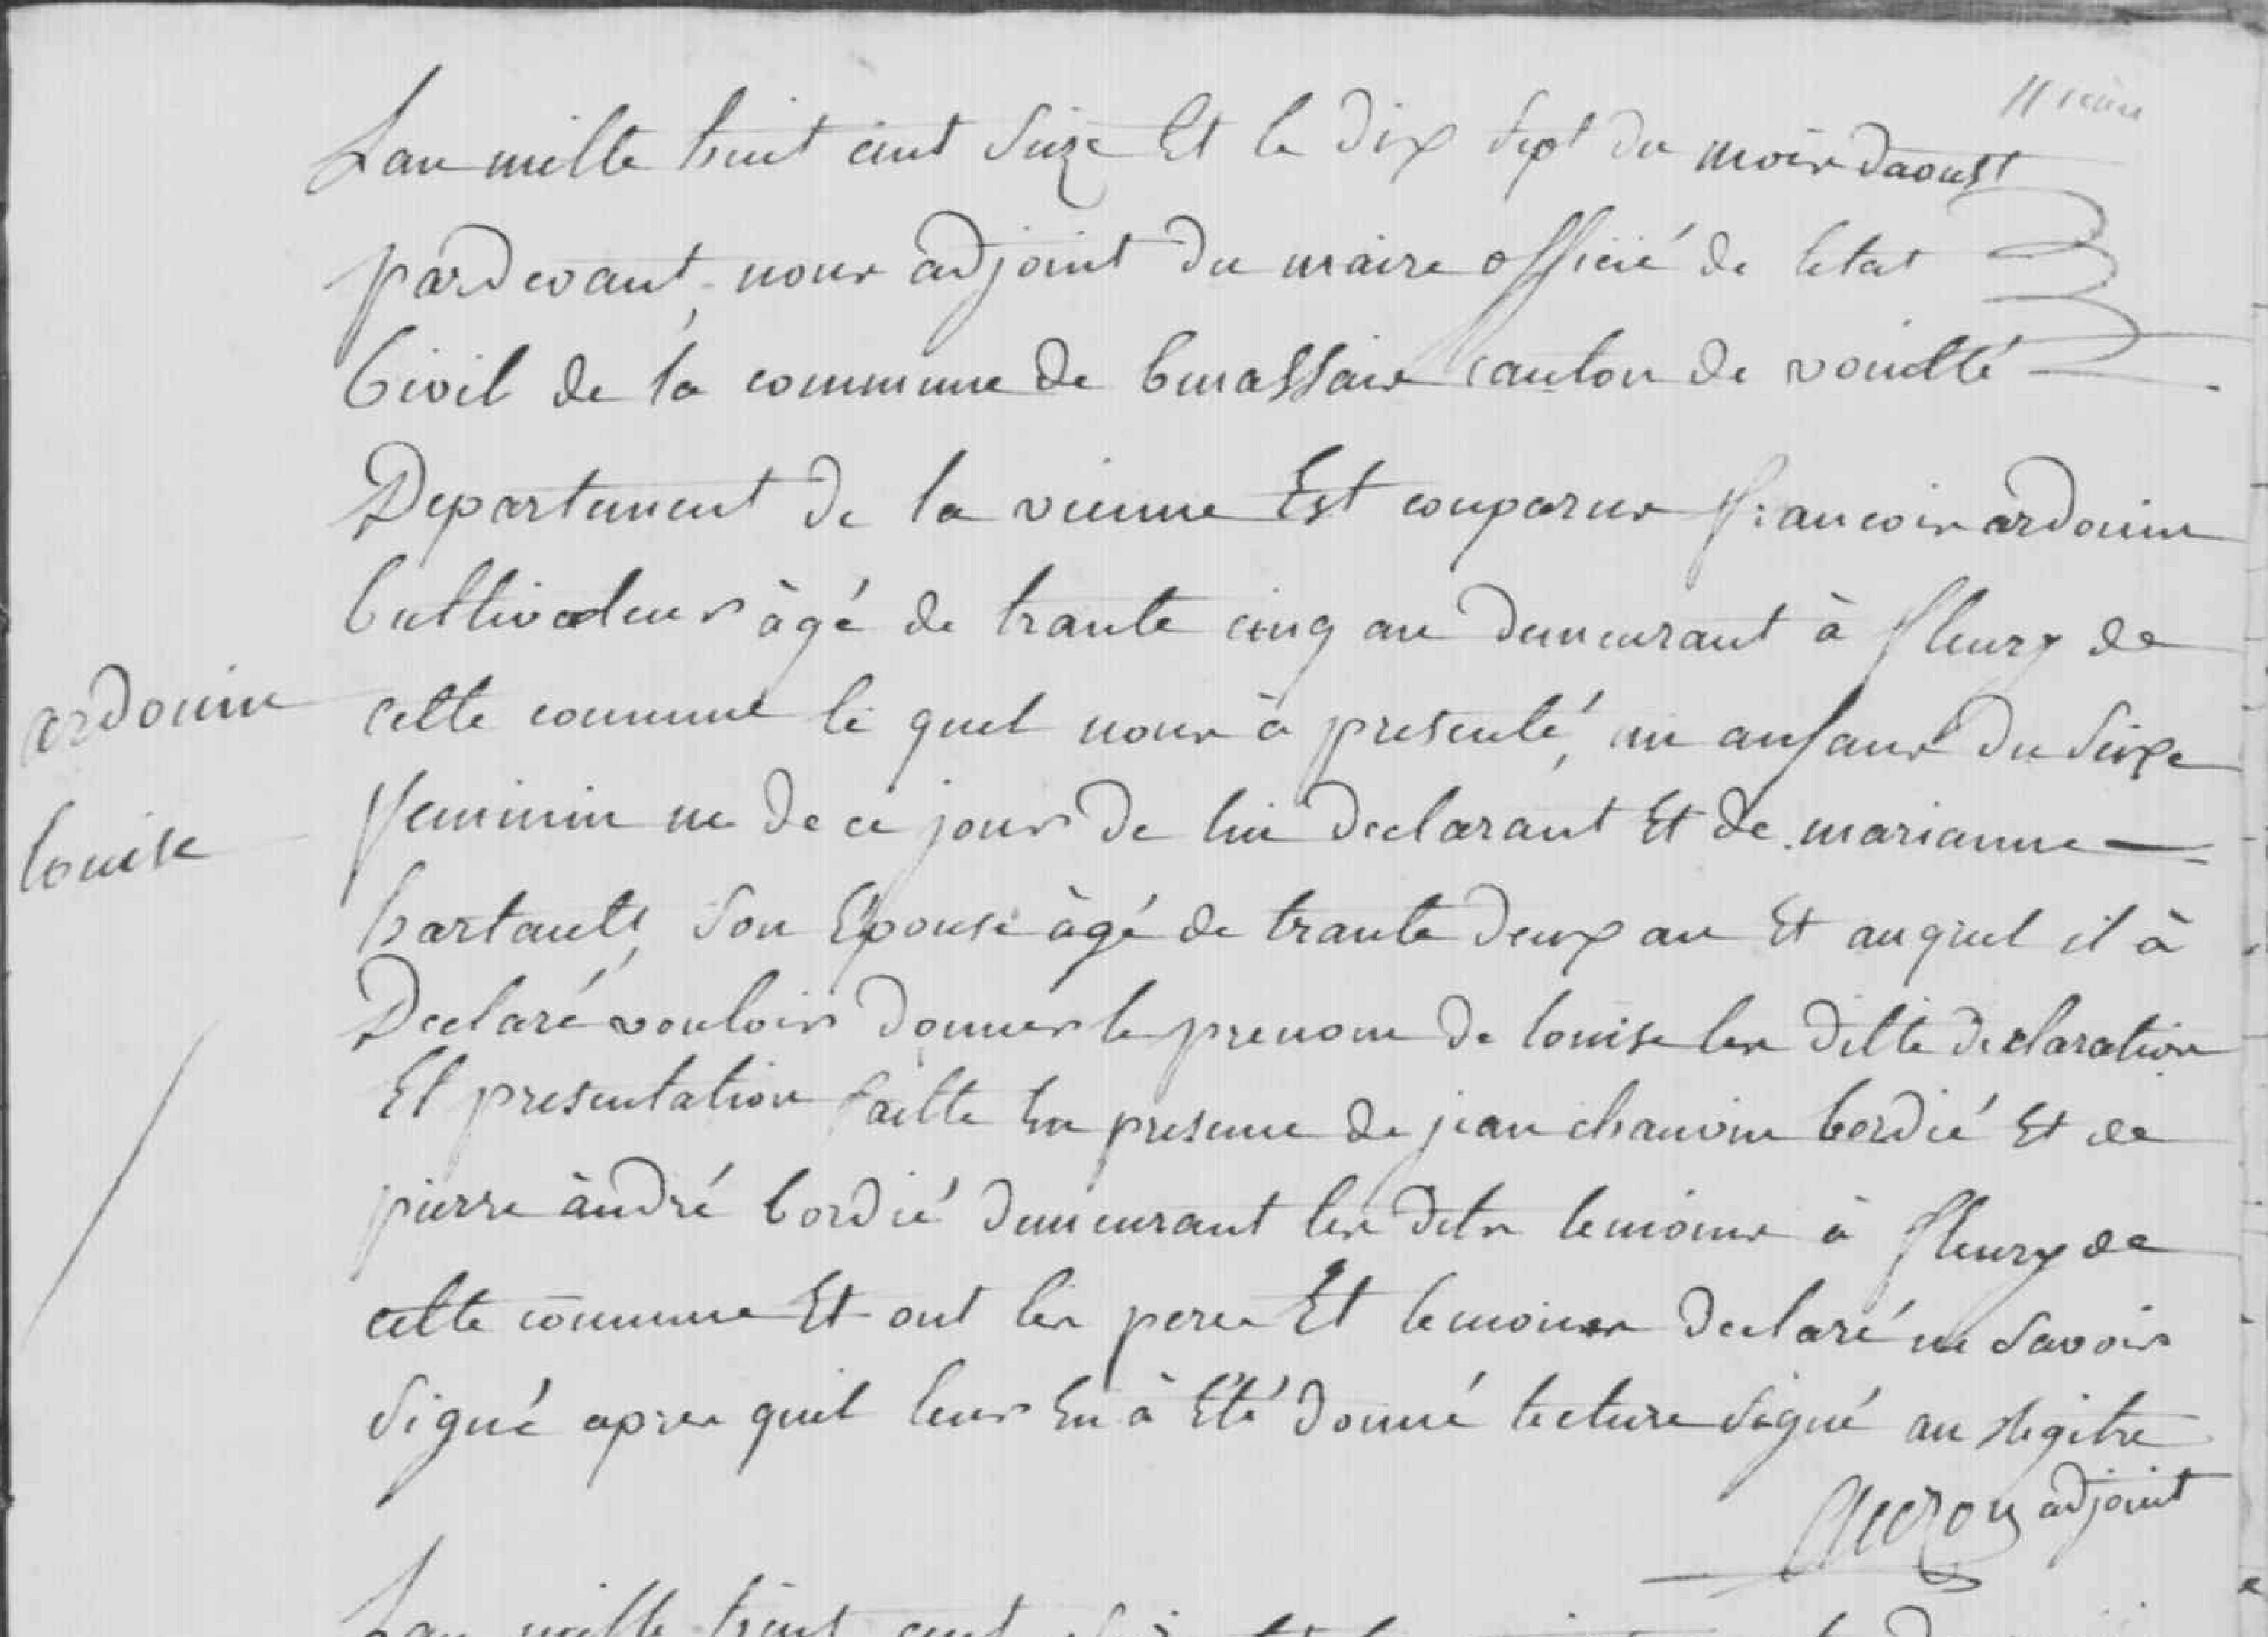 Lan mille huit cent seize Et le dix sept du mois daoust
pardevant nous adjoint du maire officié de letat
Civil de la commune de Curassais canton de vouillé
Departement de la vienne Est comparus francois ardouin
Cultivateur âgé de trante cinq an demeurant à fleury de
ardouin
cette commune le quel nous à presenté un anfant du sexe
louise
feminin ne de ce jour de lui declarant Et de marianne
hartault son Epouse âgé de trante deux an Et auquel il à
Declaré vouloir donner le prenom de louise les ditte declaration
Et presentation faitte En presence de jean chauvin bordié Et de
pierre àndré bordié demeurant les dits temoins à fleury de
cette commune Et ont les pere Et temoins declaré ne savoir
signé apres quil leur En à Eté donné lecture signé au Regitre
adjoint
Lan mille huit cent